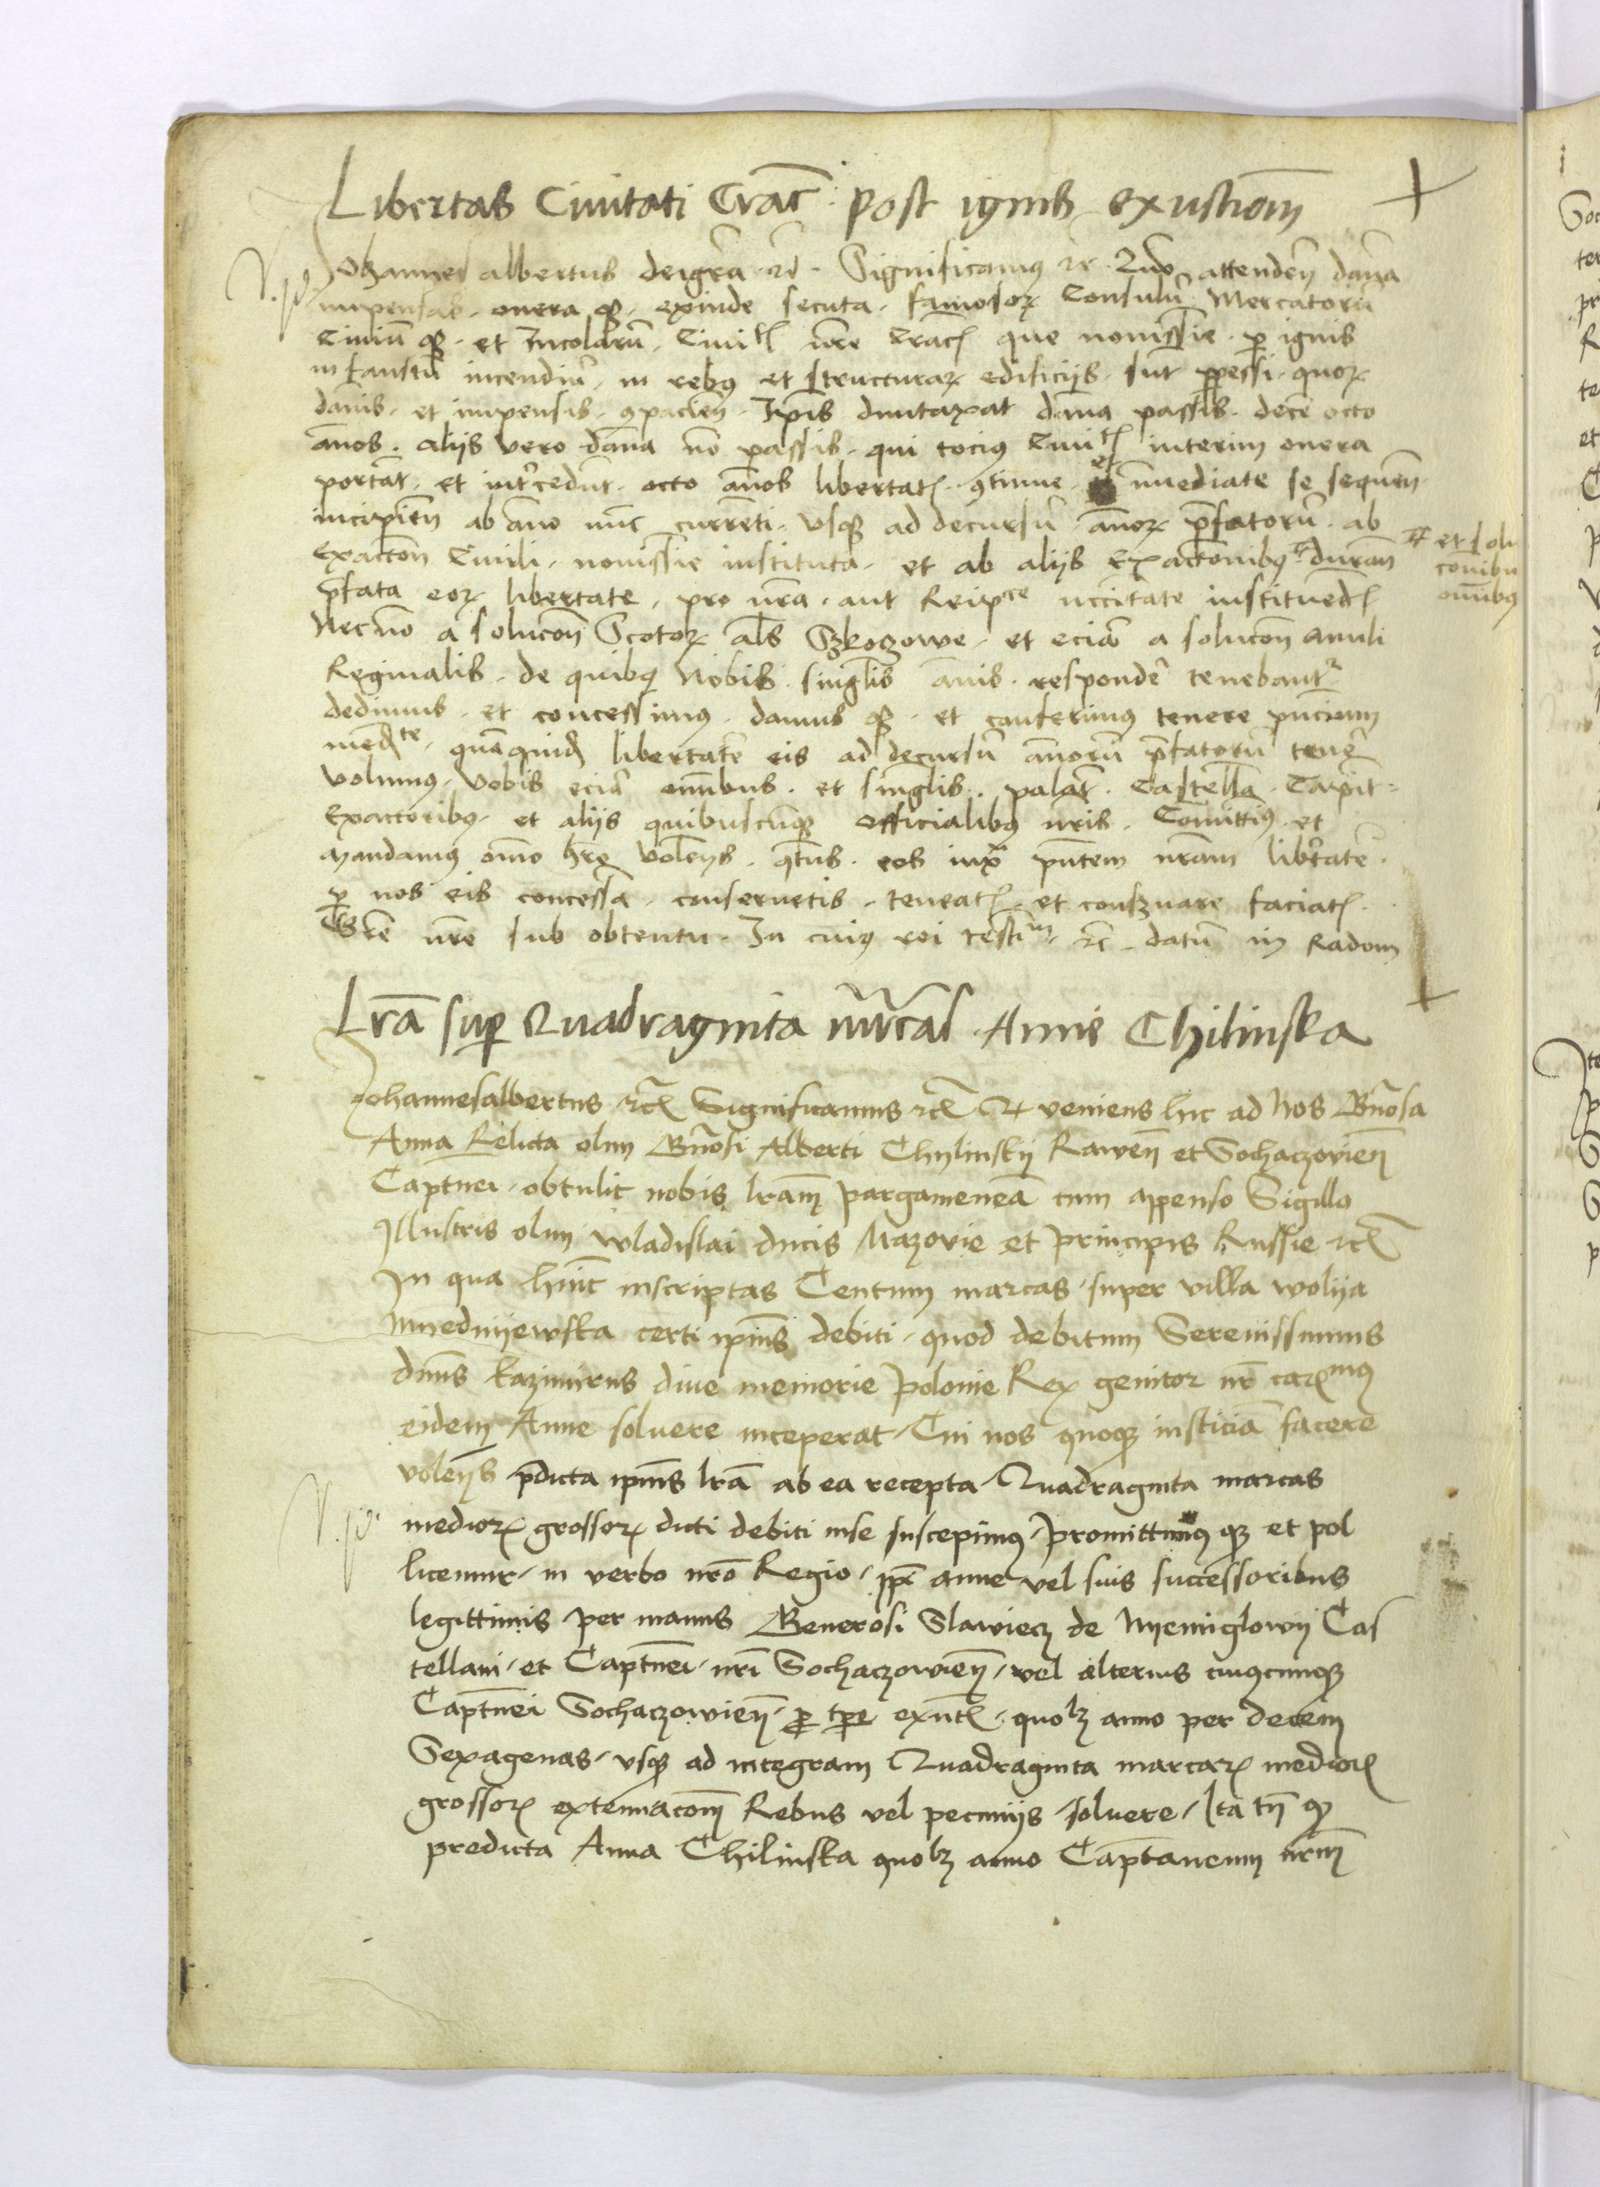 Libertas Civitati Crac. post ignis exustiom
Johannes albertus dei gra etc. Significamus etc. Quo attenden dana
impensas onera q3 exinde secuta famosor Consulu Mercatoru
Civiu q3 et Incolaru Civitt nre Crac que novissie p ignis
infaustu incendiu in rebus et structurar edificijs sut ppessi quor
danis et impensis 9pacien Ipis duntaxat dana passis dece octo
annos alijs vero dana no passis qui tocius Civitt interim onera
portat et intercedut octo annos libertat 9tinue et immediate se sequen
incipien ab anno nuc curreti usq3 ad decursu annor pfatoru ab
Exaccon Civili novissie instituta et ab alijs Exactonibus duran
et solu
conibus
omnibus
pfata eor libertate pro nra aut Reipce nccitate instituedt
Necno a solucon Scotor als Szkoczowe et ecia a solucon anuli
Reginalis de quibus Nobis singlis annis responder tenebantr
dedimus et concessimus damus q3 et conferimus tenore pncium
medte quaquid libertate eis ad decursu annoru pfatoru tener
volumus vobis ecia omibus et singlis palat Castella Capit
Exactoribus et alijs quibuscuq3 Officialibus nris Comittimus et
mandamus omo hre volens qtus eos iuxa pntem nram libertate
p nos eis concessa conservetis teneat et conservare faciat
Gre nre sub obtentu In cuius rei testim etc datu in Radom
Lra sup Quadraginta mrcas Anne Chilinska
Johannesalbertus etc Significamus etc Quia veniens huc ad nos Gnosa
Anna Relicta olim Gnosi Alberti Chylinskij Raven et Sochaczovien
Captnei obtulit nobis lram pargamenea cum appenso Sigillo
Illustris olim Wladislai ducis Mazovie et principis Russie etc
In qua huit inscriptas Centum marcas super villa wolija
Myednijewska certi ipius debiti quod debitum Serenissimus
dnus Kazimirus dive memorie polonie Rex genitor nr carmus
eidem Anne solvere inceperat Cui nos quoq3 iusticia facere
volens pdicta ipius lra ab ea recepta Quadraginta marcas
medior grossor dicti debiti in se suscepimus promittimus q3 et pol
licemur in verbo nro Regio ipi anne vel suis successoribus
legittimis per manus Generosi Slawiecz de Nyemiglowij Cas
tellani et Captnei nri Sochaczovien vel alterius cuiuscunq3
Captnei Sochaczovien p tpe exnt quolz anno per decem
Sexagenas usq3 ad integram Quadraginta marcar medior
grossor extenuacom Rebus vel pecunijs solvere Ita tn q
predicta Anna Chilinska quolz anno Captaneum nrm